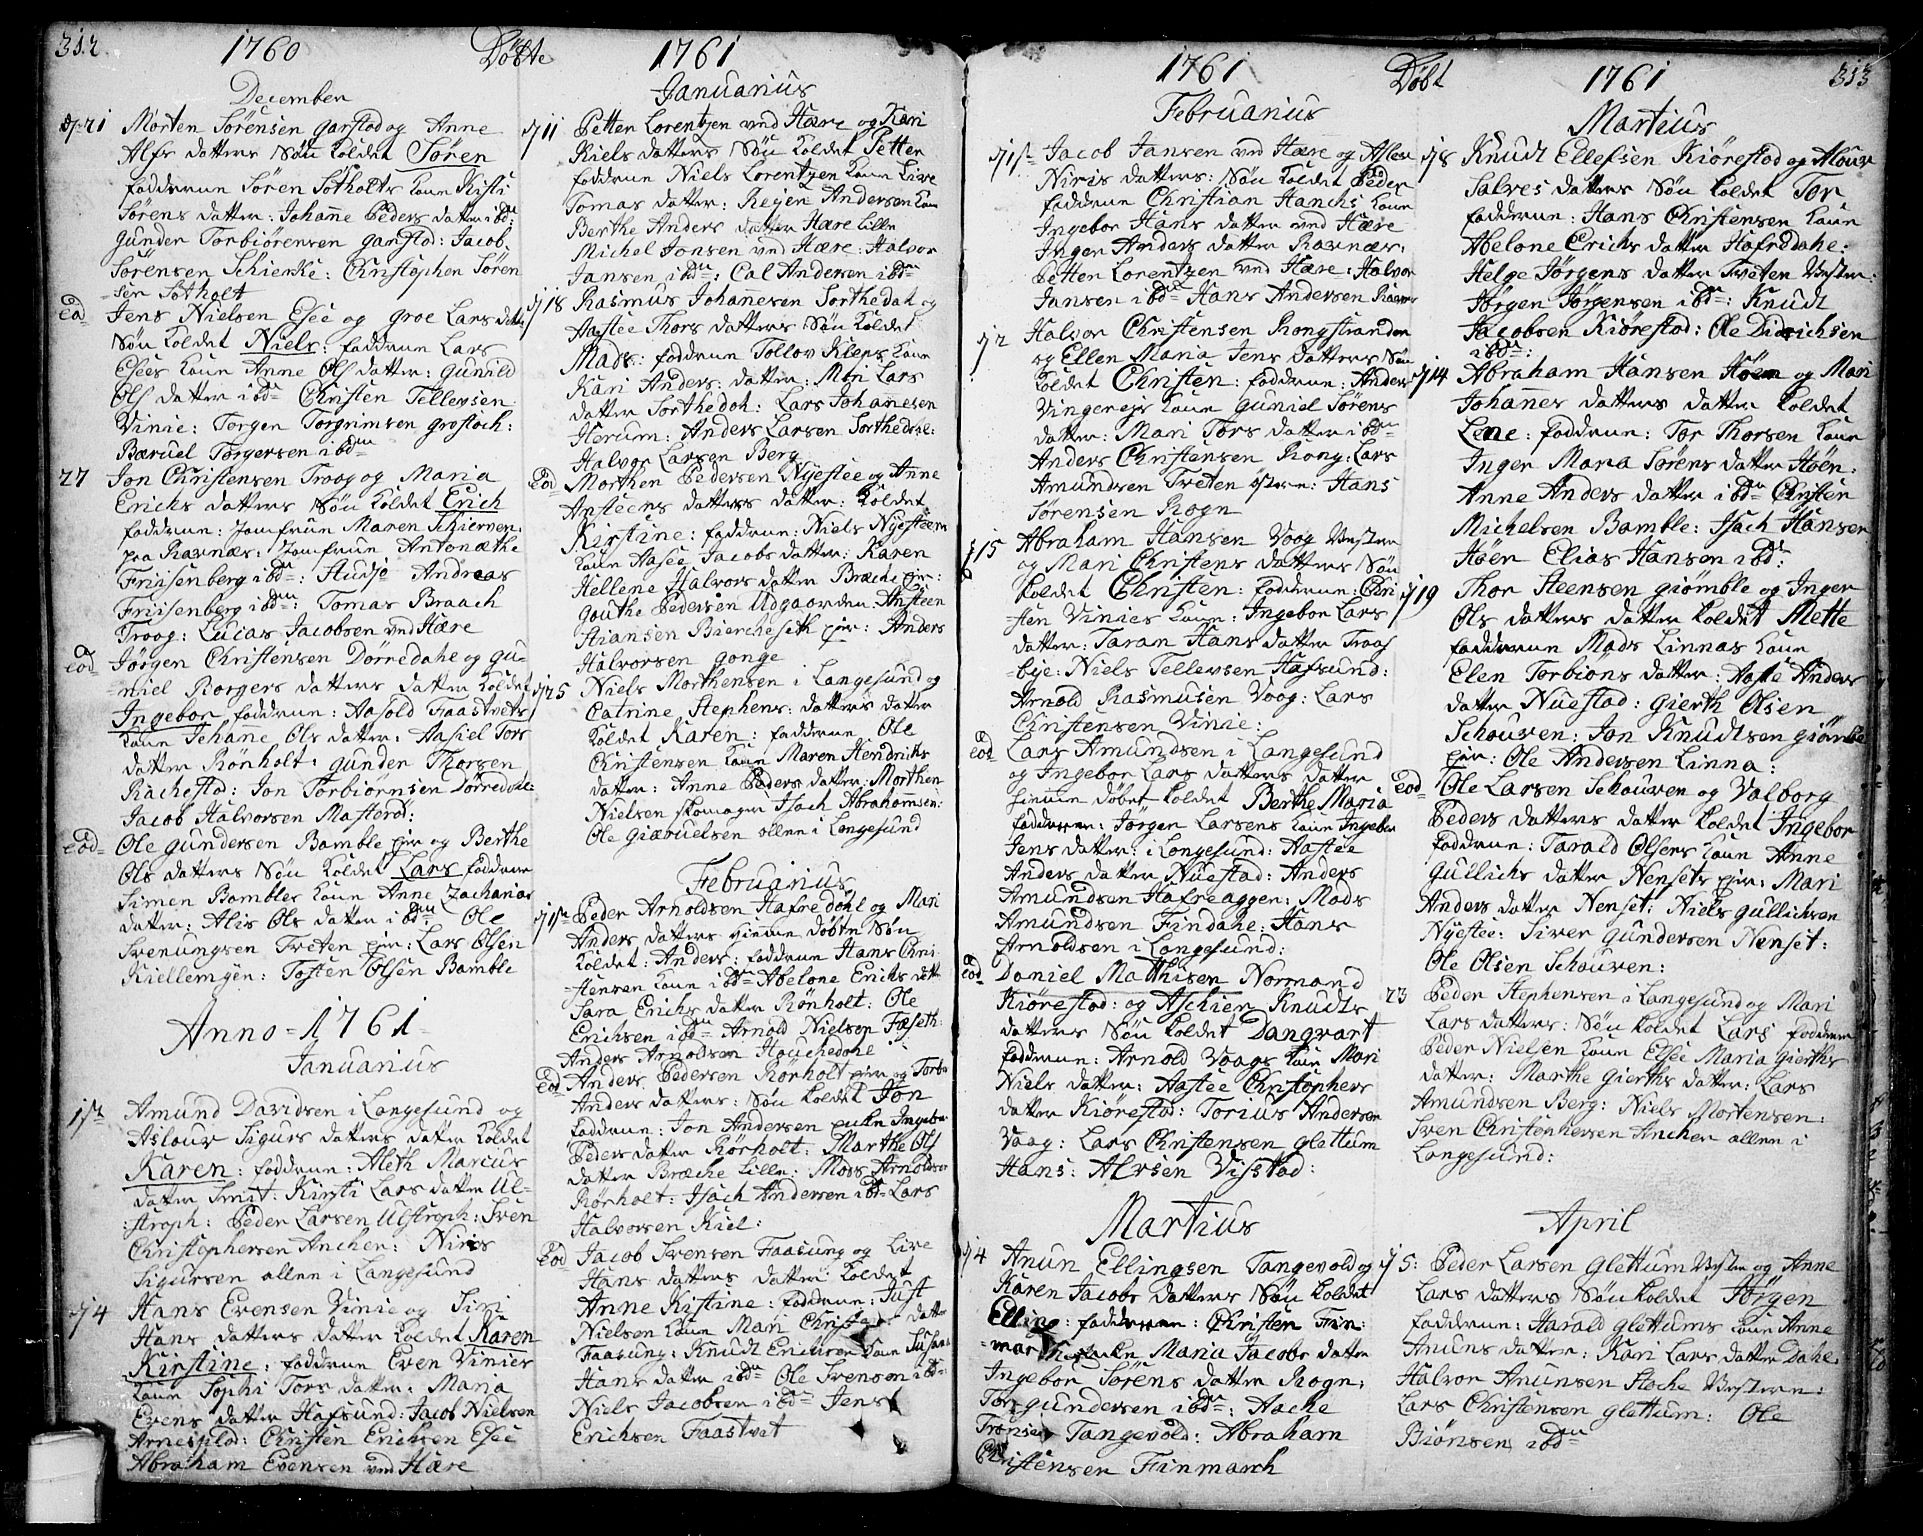 312
1760
Döbte
December
d 21 Morten Sörensen garstod og Anne
Alfs datters Sön koldet Sören
fadderne Sören Sotholts kone Kisti
Sörens datter: Johanne Peders datter ibd:
Gunder Torbiörensen garstod: Jacob
Sörensen Schierke: Christopher Sören
sen Sotholt
eod Jens Nielsen Esee og groe Lars datters
Sön koldet Niels: fadderne Lars
Esees kone Anne Ols datter: Gunild
Ols datter ibd Christen Tellevsen
Vinie: Torgen Torgrimsen grostoch:
Bæruel Torgersen ibd
27 Jon Christensen Troog og Maria
Erichs datters Sön koldet Erich
fadderne: Jomfrue Maren Schierven
paa Ravnæs: Jomfrue Antonæthe
Friisenberg ibd: Andreas
Friisenberg ibd: Tomas Braach
Troog: Lucas Jacobsen ved Hære
eod Jörgen Christensen Dörredahe og Gu-
niel Borgers datters datter koldet
Ingebor fadderne: Aasold Faastvets
kone Johanne Ols datter: Aasiel Tors
datter Rönholt: Gunder Thorsen
Rachestod: Jon Torbiörnsen Dörredole:
Jacob Halvorsen Mastered:
eod Ole Gundersen Bamble pr og Berthe
Ols datters Sön koldet Lars fadderne
Simen Bambles kone Anne Zacharias
datter: Alis Ols datter ibd Ole
Svenungsen Tveten pr: Lars Olsen
Kiellemgen: Tosten Olsen Bamble
Anno = 1761
Januarius
1ste Amund Davidsen i Langesund og
Aslour Sigurs datters datter koldet
Karen: fadderne: Aleth Marcus
datter Smit: Kirsti Lars datter Ul-
stroph: Peder Larsen Ulstroph: Sven
Christophersen Ancher: Niros
Sigursen allene i Langesund
d 4 Hans Evensen Vinie og Siri
Hans datters datter koldet Karen
Kirstine: fadderne Even Vinies
kone Sophi Tors datter: Maria
Evens datter Hafsund: Jacob Nielsen
Arnesplod: Christen Ericksen Esee
Abraham Evensen ved Hære
1761
Januarius
d 11 Petter Lorentzen ved Hære og Kari
Niels datters Sön koldet Petter
fadderne Niels Lorentzen kone Live
Tomas datter: Rejer Andersen kone
Berthe Anders datter Hære lille
Michel Jonsen ved Hære: Halvor
Jansen ibd: Cal Andersen ibd
d 18 Rasmus Johannesen Sorthedal og
Aastee Thors datters Sön koldet
Mads: fadderne Tollov Kleps kone
Kari Anders datter: Mari Lars
datter Sorthedoh: Lars Johanesen
Herum: Anders Larsen Sorthedole:
Halvor Larsen Berg
eod Morthen Pedersen Nyestee og Anne
Ansteens datters datter: koldet
Kirstine: fadderne: Niels Nyesteens
kone Aasee Jacobs datter: Karen
Hellene Halvors datter Bræche pr:
Gouthe Pedersen Udgaarden: Ansteen
Stiansen Biercheseth pr: Anders
Halvorsen gonge
d 25 Niels Morthensen i Langesund og
Catrine Stephens: datters datter
koldet Karen: fadderne Ole
Christensen kone Maren Hendrichs
datter: Anne Peders datter: Morthen
Nielsen skomager Isach Abrahamsen:
Ole Giæbuelsen allene i Langesund
Februarius
d 1ste Peder Arnoldsen Hafredahl og Mari
Anders datters hiemme döbte Sön
koldet: Anders: fadderne Hans Chri-
stensen kone ibd Abelone Erichs datt
Sara Erichs datter Rönholt: Ole
Erichsen ibd Arnold Nielsen Fæseth:
Anders Arnoldsen Houchedohe
eod Anders Pedersen Rörholt pr og Torbe
Anders datters: Sön koldet Jon
fadderne: Jon Andersen enke Ingebor
Peders datter Rörholt: Marthe Ols
datter Bræche lille: Moss Arnoldsen
Rörholt: Isach Andersen ibd Lars
Halvorsen Kiel:
eod Jacob Svensen Faasung og Live
Hans datters datter koldet
Anne Kistine: fadderne: Just
Nielsen kone Mari Christens datter
Faasung: Knudt Erichsen kone Susanne
Hans datter ibd Ole Svensen ibd:
Niels Jacobsen ibd Jens
Erichsen Faastvet
1761
Döbt
Februarius
d 1ste Jacob Jansen ved Hære og Aslou
Niris datters: Sön koldet Peder
fadderne Christian Hanchs kone
Ingebor Hans datter ved Hære
Inger Anders datter Ravnæs:
Petter Lorentzen ved Hære: Halvor
Jansen ibd Hans Andersen Ravnæs
d 2 Halvor Christensen Rongstranden
og Ellen Maria Jens datters Sön
koldet Christen: fadderne: Anders
Vingereis kone Guniel Sörens
datter: Mari Tors datter ibd
Anders Christensen Rong: Lars
Amundsen Tveten östere: Hans
Sörensen Rogn
d 15 Abraham Hansen Voog Vester
og Mari Christens datters Sön
koldet Christen: fadderne: Chri
sten Vinies kone: Ingebor Lars
datter: Taran Hans datter Traas
bye: Niels Tellevsen Hafsund:
Arnold Rasmusen Voog: Lars
Christensen Vinie:
eod Lars Amundsen i Langesund
og Ingebor Lars datters datter
hiemme döbet koldet Berthe Maria
fadderne: Jörgen Larsens kone Ingebor
Jens datter: i Longesund: Aastee
Anders datter Nuestad: Anders
Amundsen Hafreaggen: Mads
Amundsen Findahe: Hans
Arnoldsen i Langesund:
eod Daniel Matthisen Normand
Kiörestod: og Aschier Knudts
datters Sön koldet Dangvart
fadderne: Arnold Voogs kone Mari
Niels datter: Aastee Christophers
datter Kiörestod: Torius Andersen
Voog: Lars Christensen Glettum
Hans: Alvsen Vissstad:
Martius
d 4 Anun Ellingsen Tangevold og
Karen Jacobs datters Sön koldet
Elling: fadderne: Christen Fin-
mar enke Maria Jacobs datter
Ingebor Sörens datter Rogn:
Tor Gundersen ibd: Aache
Tronsen Tangevold: Abraham
Christensen Finmarch
1761
313
Martius
d 8 Knudt Ellefsen Kiörestod og Aslour
Salves datters Sön koldet Tor
fadderne: Hans Christensen kone
Abelone Erichs datter Hafredahe:
Helge Jörgens datter Tveten Vester:
Jörgen Jörgensen ibd: Knudt
Jacobsen Kiörestod: Ole Didrichsen
ibd:
d 14 Abraham Hansen Höen og Mari
Johannes datters datter koldet
Lene: fadderne: Tor Thorsen kone
Inger Maria Sörens datter Höen:
Anne Anders datter ibd Christen
Michelsen Bamble: Isach Hansen
Höen Elias Hansen ibd:
d 19 Thor Steensen giömble og Inger
Ols datters datter koldet Mette
fadderne Mads Linnas kone
Elen Torbiöns datter: Aaste Anders
datter Nuestad: Gierth Olsen
Schouven: Jon Knudtsen giömble
pr: Ole Andersen Linna:
eod Ole Larsen Schouven og Valborg
Peders datters datter koldet Ingebor
fadderne: Tarald Olsens kone Anne
Gullichs datter Nensets pr: Mari
Anders datter Nenset: Niels Gullichsen
Nyestee: Siver Gundersen Nenset:
Ole Olsen Schouven:
23 Peder Stephensen i Langesund og Mari
Lars datters: Sön koldet Lars fadderne
Peder Nielsen kone Elsee Maria Gierths
datter: Marthe Gierths datter: Lars
Amundsen Berg: Niels Mortensen:
Sven Christophersen Ancher allene i
Longesund:
April
d 5: Peder Larsen Glettum Vester og Anne
Lars datters Sön koldet Jörgen
fadderne: Harald Glettums kone Anne
Anuns datter: Kari Lars datter Dahe:
Halvor Anunsen Stoche Vestere:
Lars Christensen Glettum: Ole
Biönsen ibd